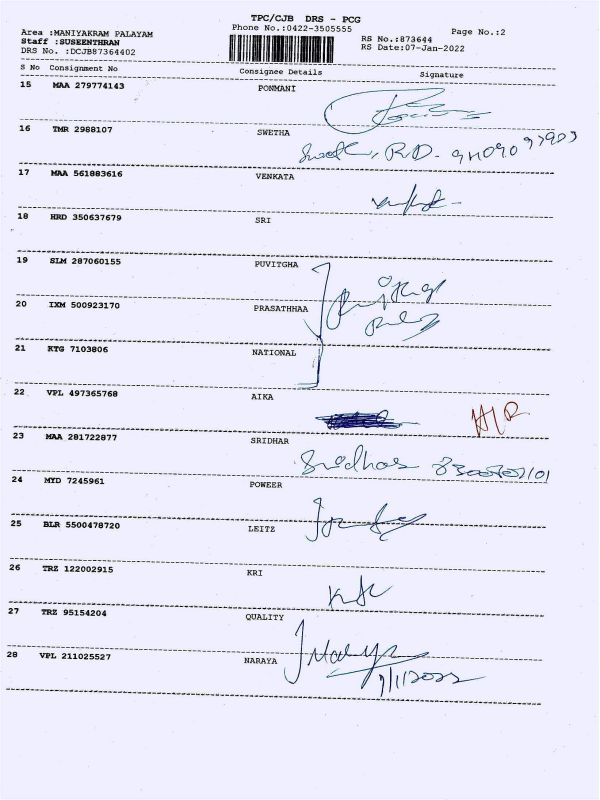 TPC/CJB DRS - PCG
Area :MANIYAKRAM PALAYAM
Phone No.:0422-3505555
Page No.:2
Staff :SUSEENTHRAN
RS No.:873644
DRS No. :DCJB87364402
RS Date:07-Jan-2022
S No Consignment No Consignee Details Signature
15 MAA 279774143 PONMANI
16 TMR 2988107 SWETHA
17 MAA 561883616 VENKATA
18 HRD 350637679 SRI
19 SLM 287060155 PUVITGHA
20 IXM 500923170 PRASATHHAA
21 KTG 7103806 NATIONAL
22 VPL 497365768 AIKA
23 MAA 281722877 SRIDHAR
Sridhar
24 MYD 7245961 POWEER
25 BLR 5500478720 LEITZ
26 TRZ 122002915 KRI
27 TRZ 95154204 QUALITY
28 VPL 211025527 NARAYA